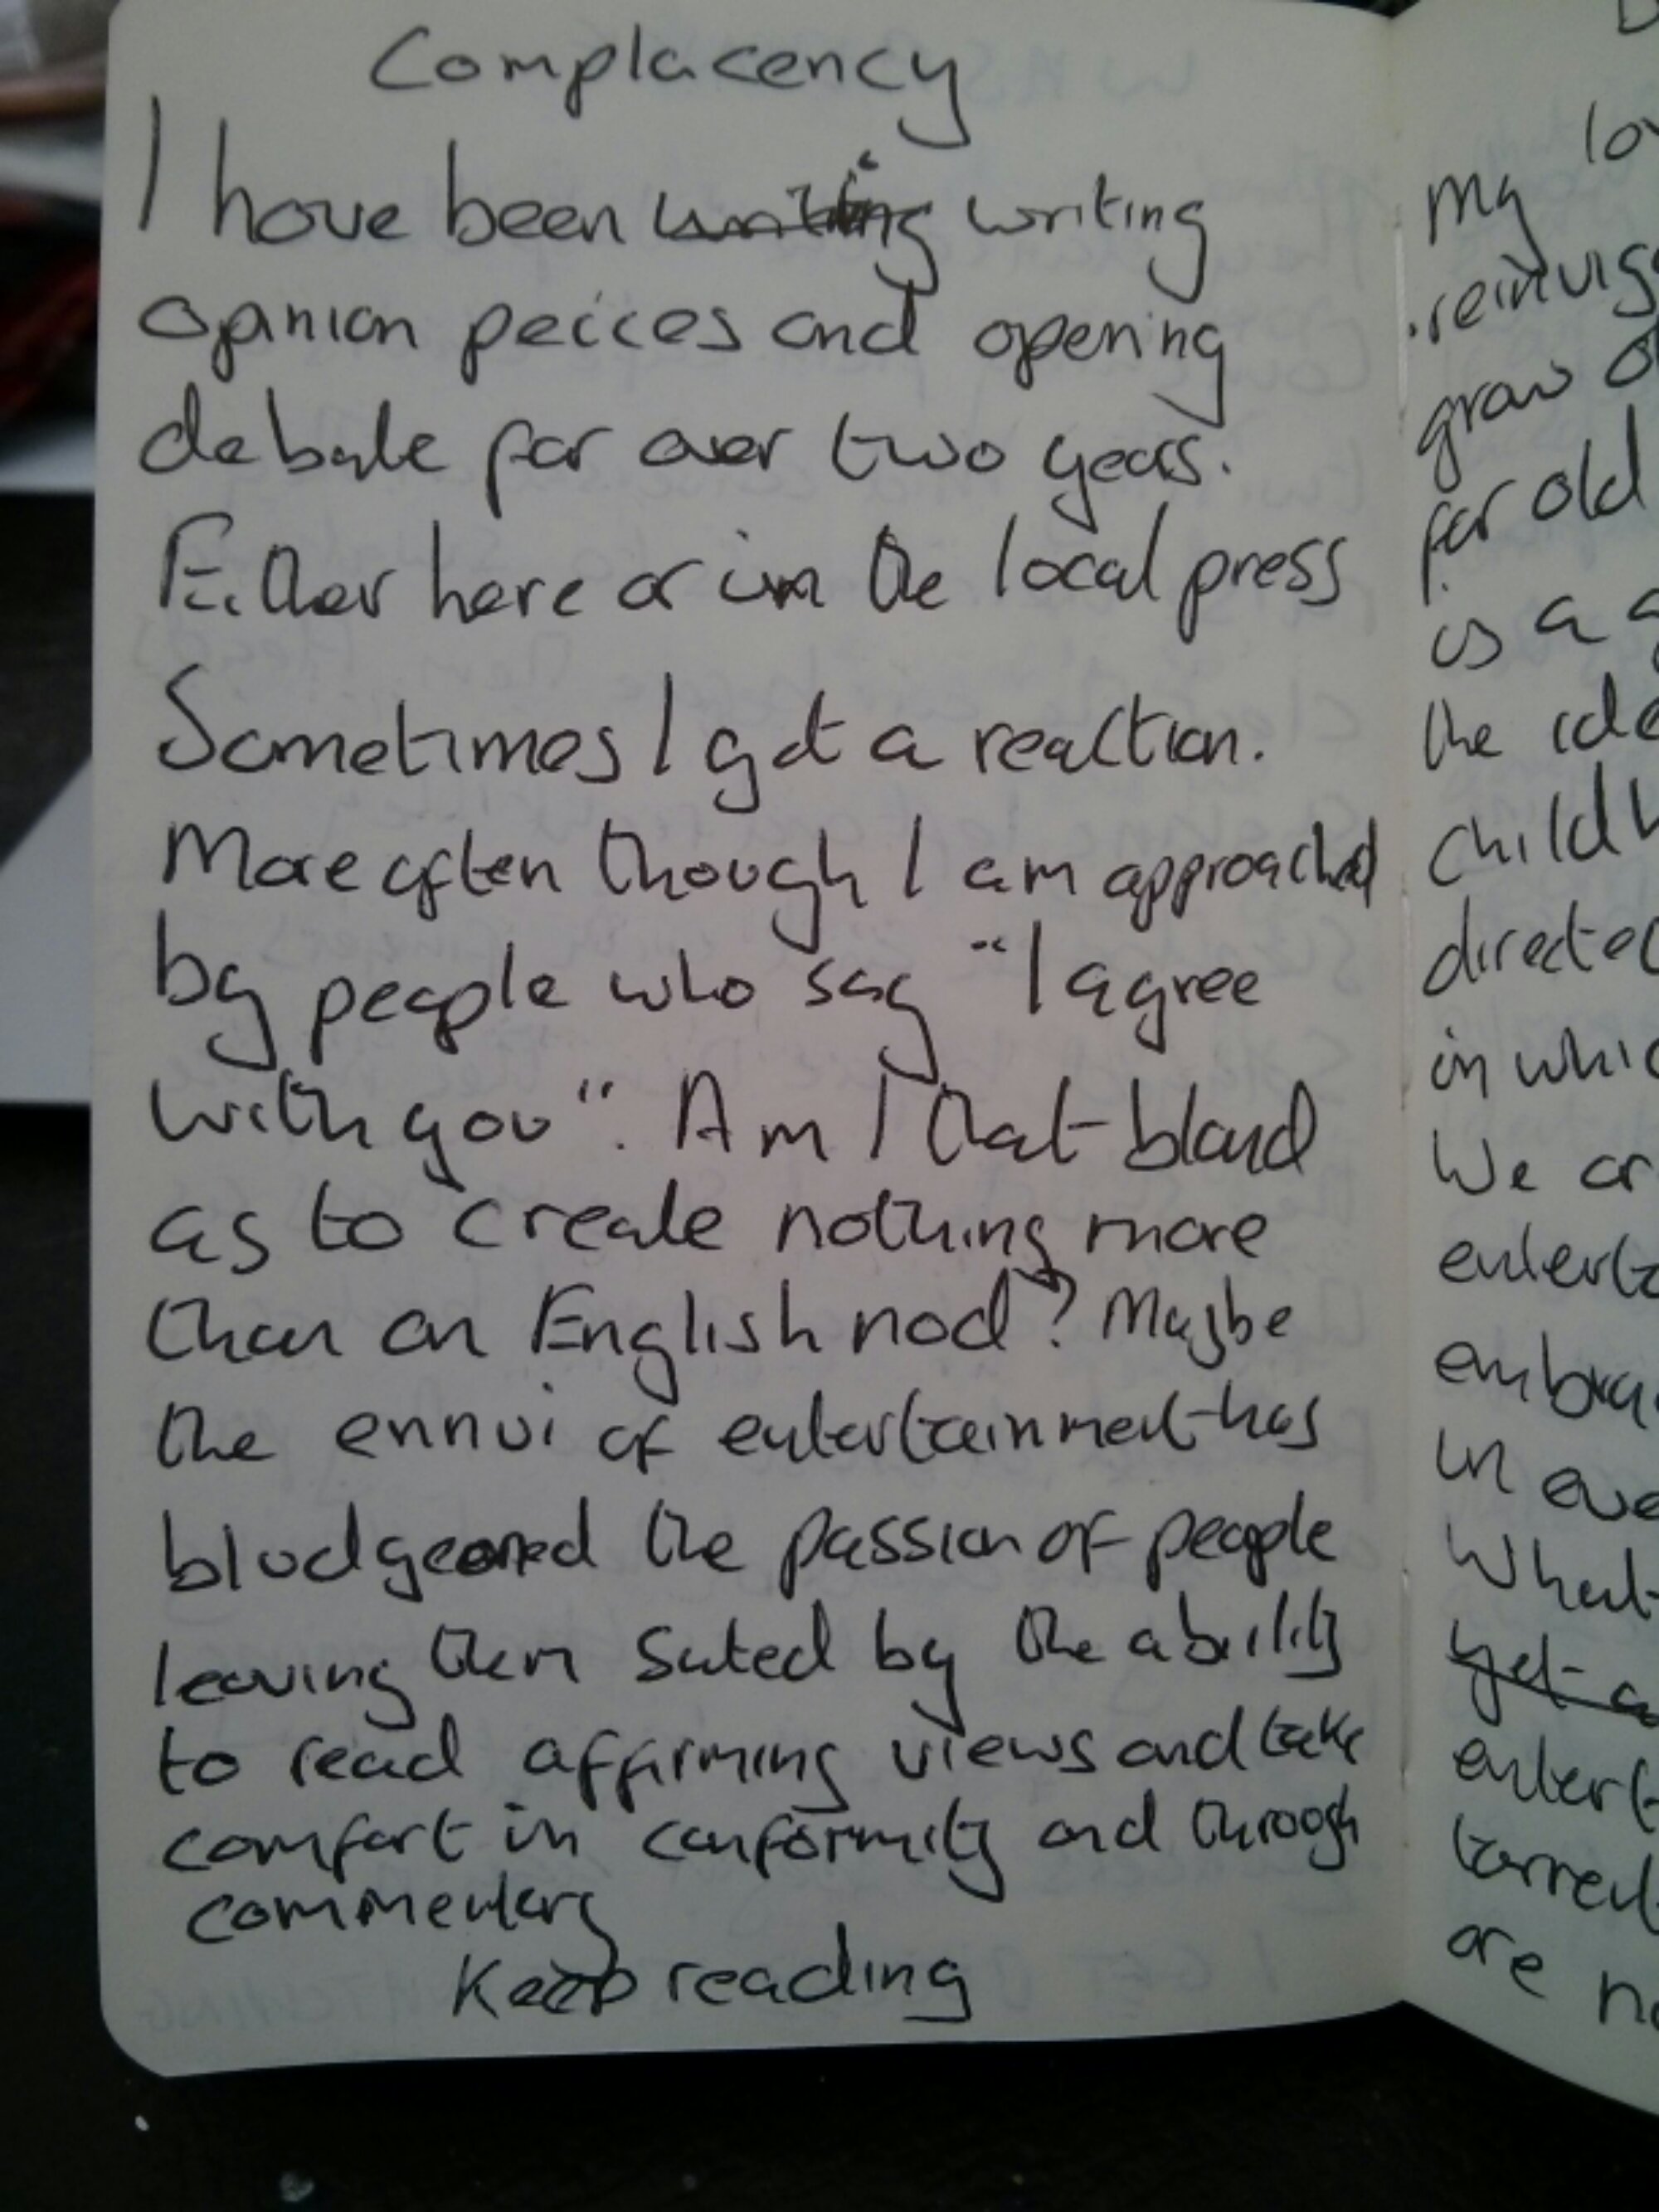 Complacency
I have been writing writing
opinion peices and opening
debate for over two years.
Either here or in the local press
Sometimes I get a reaction.
More often though I am approached
by people who say "I agree
with you". Am I that bland
as to create nothing more
than an English nod? Maybe
the ennui of entertainment has
bludgeoned the passion of people
leaving them sated by the ability
to read affirming views and take
comfort in conformity and through
commentary
Keep reading
lo
my
reinvig
grow o
for old
is a a
the ide
child h
directed
in whic
We ar
enterta
embra
in eve
What
yet a
entert
torrent
are no